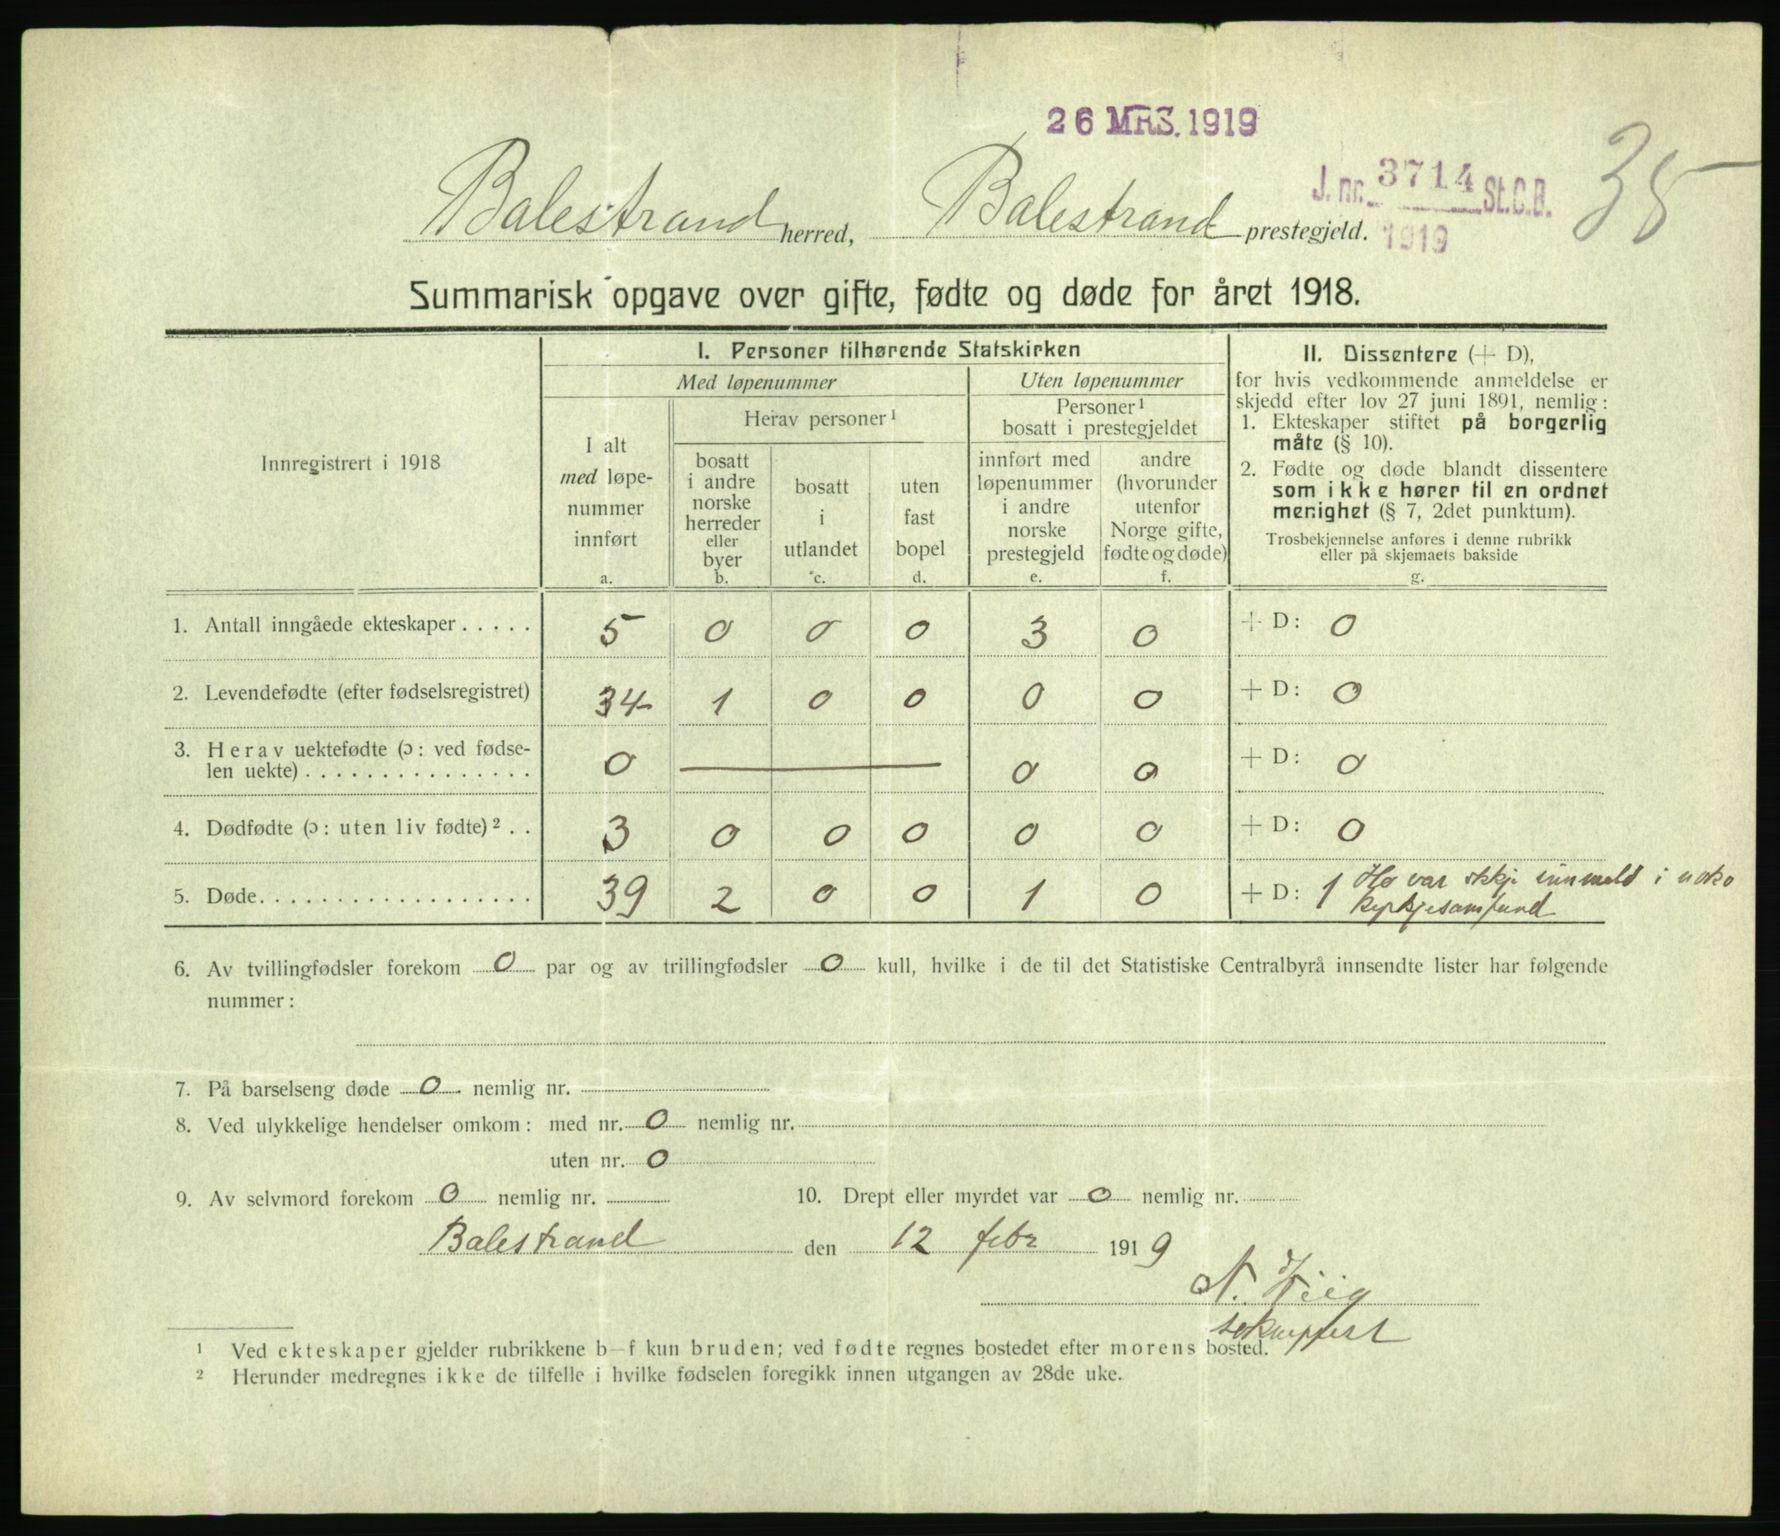 26 MRS. 1919
J. nr. 3714 St.C.B.
1919
35
Balestrand herred, Balestrand prestegjeld.
Summarisk opgave over gifte, fødte og døde for året 1918.
Innregistrert i 1918
I. Personer tilhørende Statskirken
Med løpenummer
Uten løpenummer
I alt
med løpe-
nummer
innført
a.
Herav personer ¹
bosatt
i andre
norske
herreder
eller
byer
b.
bosatt
i
utlandet
c.
uten
fast
bopel
d.
Personer ¹
bosatt i prestegjeldet
innført med
løpenummer
i andre
norske
prestegjeld
e.
andre
(hvorunder
utenfor
Norge gifte,
fødte og døde)
f.
II. Dissentere (+ D),
for hvis vedkommende anmeldelse er
skjedd efter lov 27 juni 1891, nemlig:
1. Ekteskaper stiftet på borgerlig
måte (§ 10).
2. Fødte og døde blandt dissentere
som ikke hører til en ordnet
menighet (§ 7, 2det punktum).
Trosbekjennelse anføres i denne rubrikk
eller på skjemaets bakside
g.
1. Antall inngåede ekteskaper ..... 5 0 0 0 3 0 + D: 0
2. Levendefødte (efter fødselsregistret) 34 1 0 0 0 0 + D: 0
3. Herav uektefødte (ɔ: ved fødse-
len uekte) ............... 0 — 0 0 + D: 0
4. Dødfødte (ɔ: uten liv fødte) ² .. 3 0 0 0 0 0 + D: 0
5. Døde .................. 39 2 0 0 1 0 + D: 1 Ho var ikkje innmeld i noko
kyrkjesamfund
6. Av tvillingfødsler forekom 0 par og av trillingfødsler 0 kull, hvilke i de til det Statistiske Centralbyrå innsendte lister har følgende
nummer:
7. På barselseng døde 0 nemlig nr.
8. Ved ulykkelige hendelser omkom: med nr. 0 nemlig nr.
uten nr. 0
9. Av selvmord forekom 0 nemlig nr. 10. Drept eller myrdet var 0 nemlig nr.
Balestrand den 12 febr 1919
N. Hiig
sokneprest
¹ Ved ekteskaper gjelder rubrikkene b—f kun bruden; ved fødte regnes bostedet efter morens bosted.
² Herunder medregnes ikke de tilfelle i hvilke fødselen foregikk innen utgangen av 28de uke.